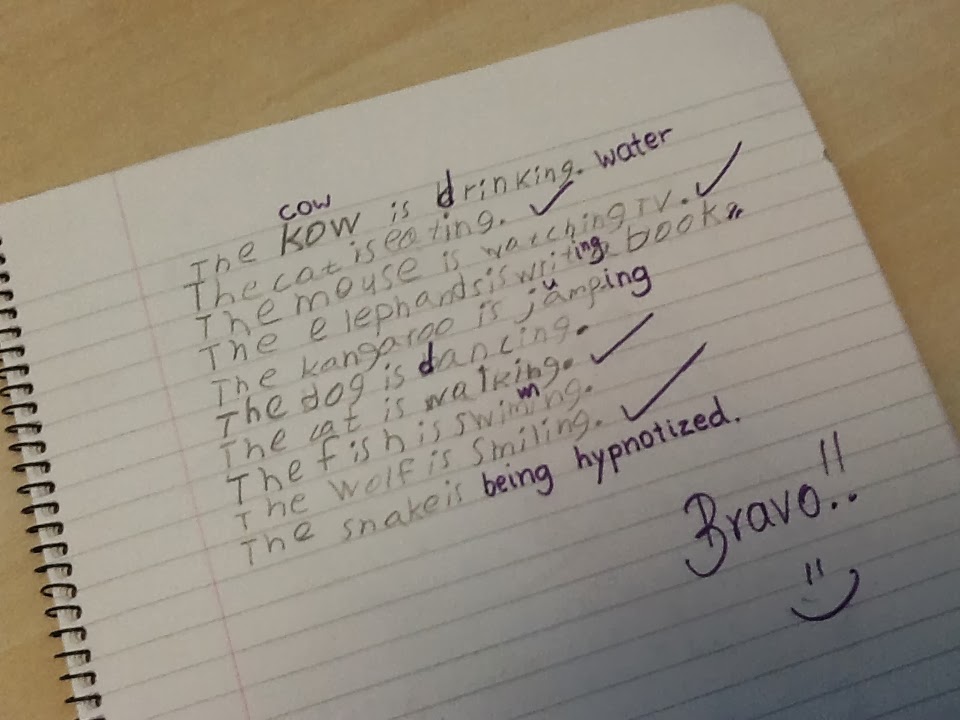 cow
The KOW is drinking. water
The cat is eating.
The mouse is watching TV.
The elephands is writing books
The kangaroo is jumping
The dog is dancing.
The cat is walking.
The fish is swimming.
The wolf is Smiling.
The snake is being hypnotized.
Bravo!!